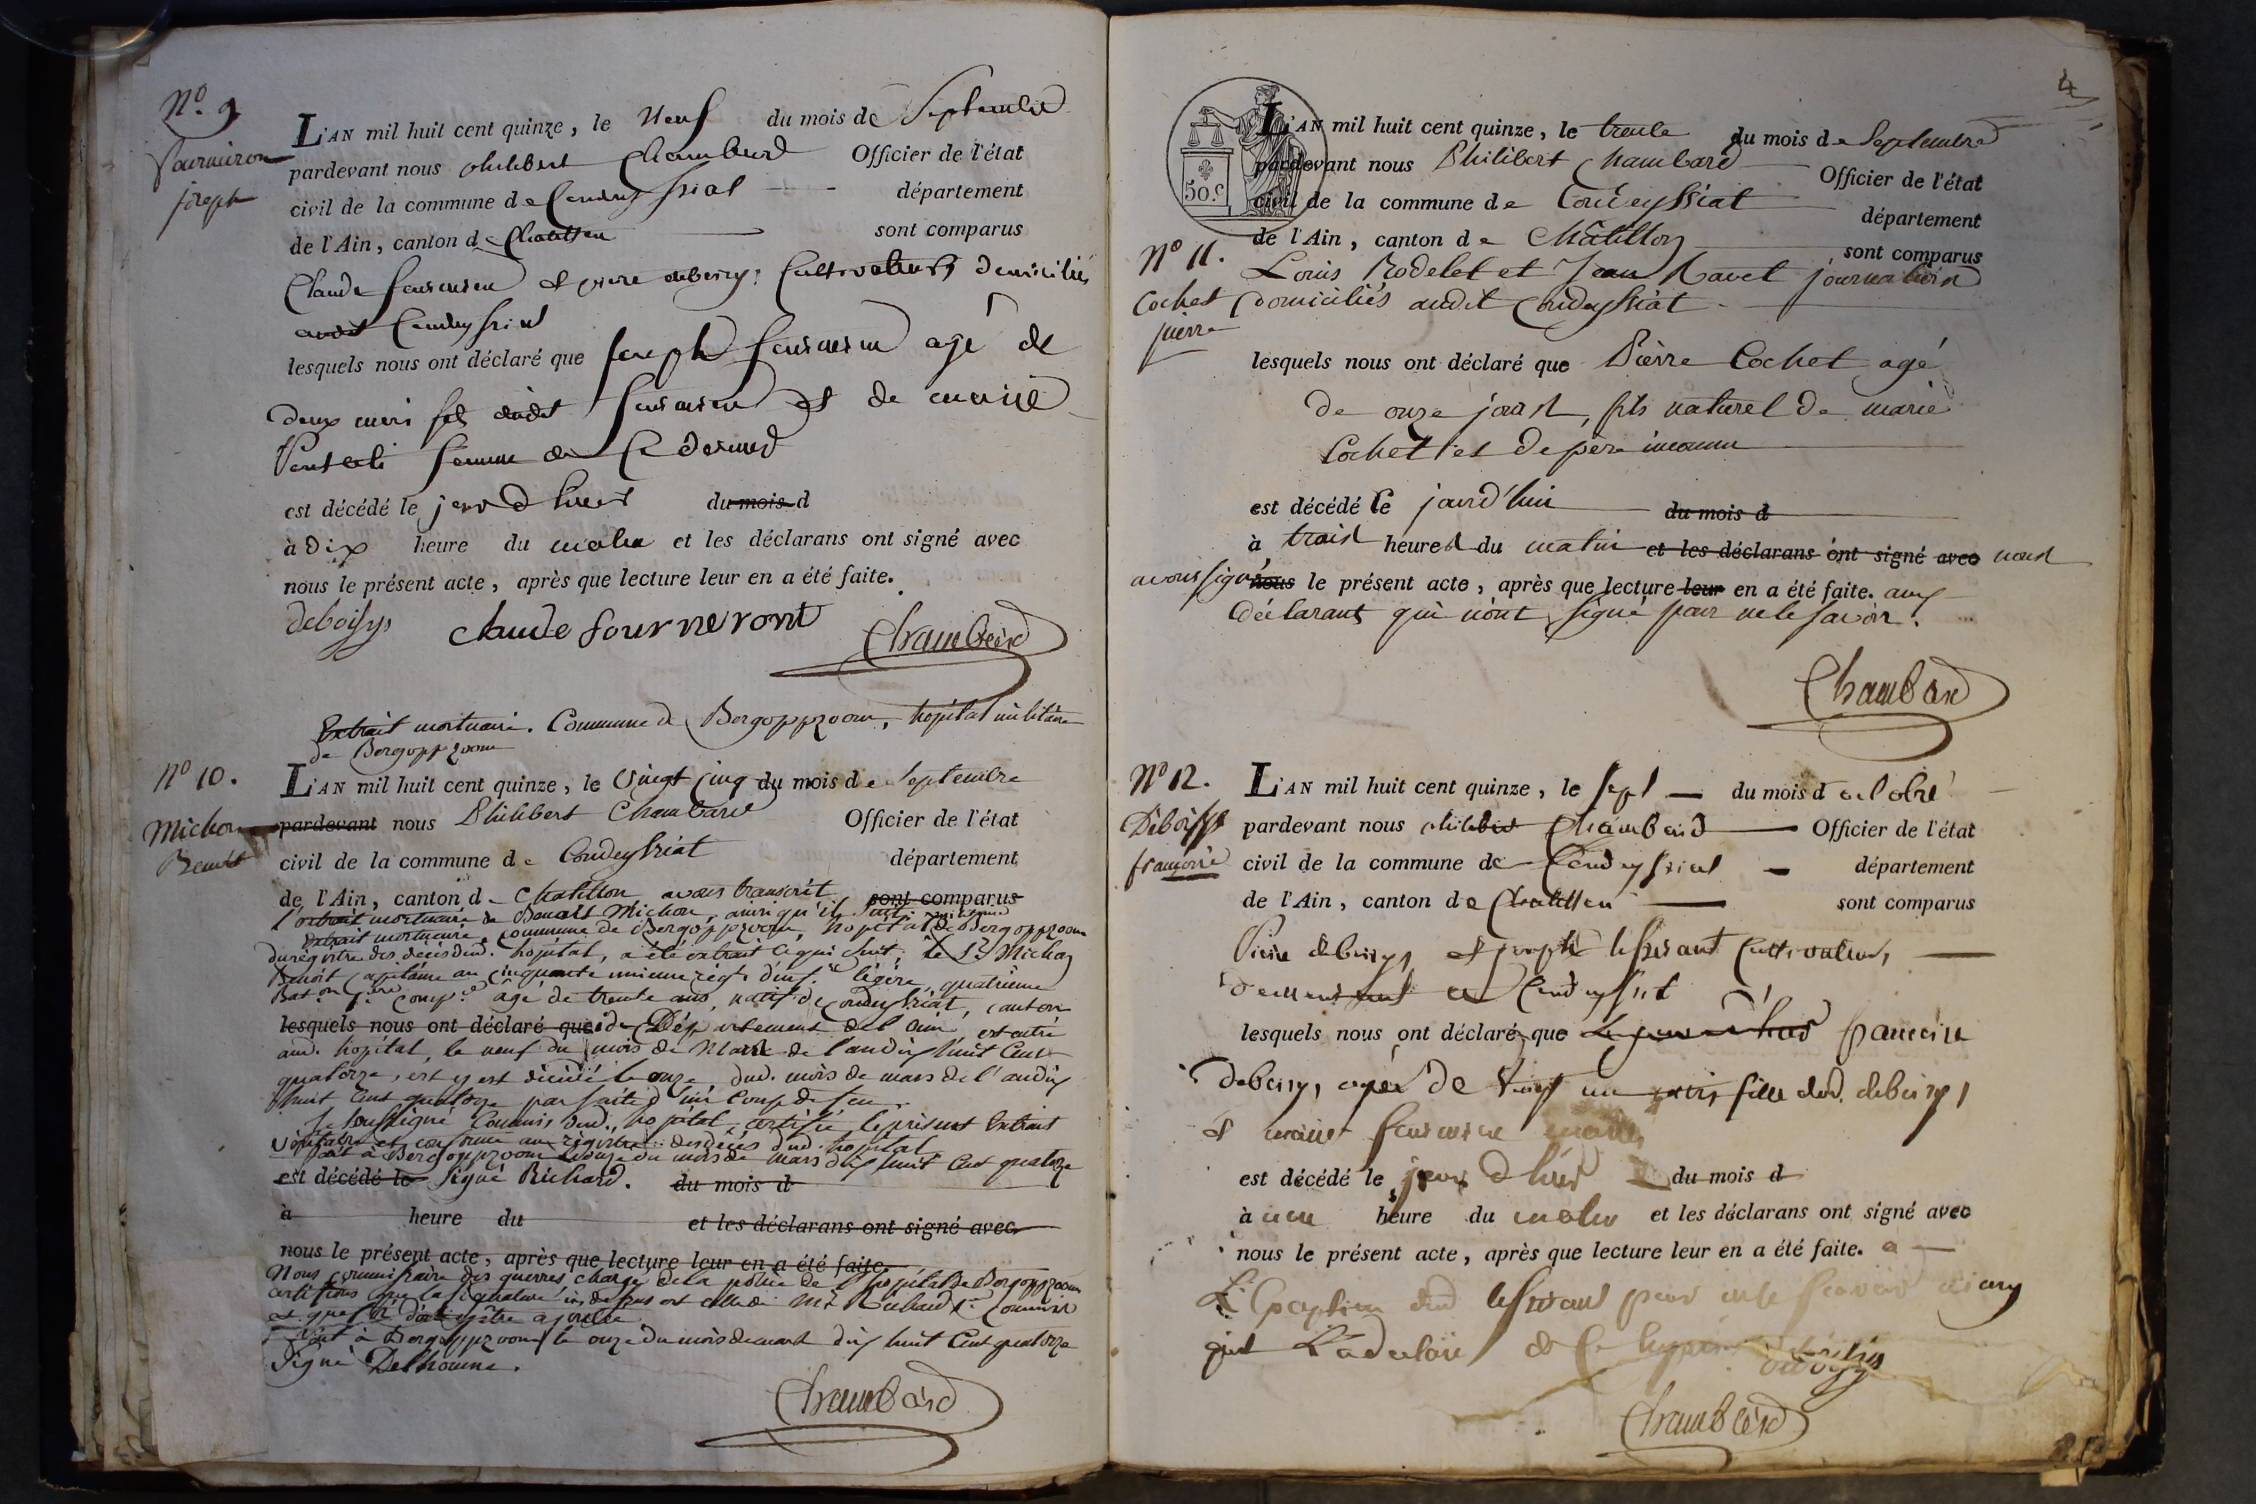 N.º 9
fourniron
joseph
L'AN mil huit cent quinze, le Neuf du mois de Septembre
pardevant nous philibert Chambard Officier de l'état
civil de la commune de Condeyssiat département
de l'Ain, canton de Chatillon sont comparus
Claude et pierre deboisy, Cultivateurs domiciliés
audit Condeyssiat
lesquels nous ont déclaré que joseph agé de
deux mois fils dudit et de marie
femme de Ce dernier
est décédé le jourd'huit du mois d
à dix heure du matin et les déclarans ont signé avec
nous le présent acte, après que lecture leur en a été faite.
deboisys claude fourneront Chambard
Extrait mortuaire. Commune de Bergoppzoom, hopital militaire
de Bergoppzoom
N.º 10.
Michon
Benoit
L'AN mil huit cent quinze, le Vingt cinq du mois de Septembre
pardevant nous Philibert Chambard Officier de l'état
civil de la commune de Condeyssiat département
de l'Ain, canton de Chatillon avons transcrit sont comparus
l'extrait mortuaire de Benoit Michon, ainsi qu'il suit: militaire
Extrait mortuaire, commune de Bergoppzoom, hopital de Bergoppzoom
du registre des décès dud. hopital, a été extrait ce qui suit, le Sr. Michon
Benoit Capitaine au cinquante unieme régt. d'inf.ie légère, quatrieme
Bat.on 1ere comp.ie âgé de trente ans, natif de Condeyssiat, canton
lesquels nous ont déclaré que de Département de l'ain est entré
aud. hopital, le neuf du mois de Mars de l'an dix huit Cent
quatorze, est y est décédé le onze dud. mois de mars de l'an dix
huit Cent quatorze par suite d'un Coup de feu.
Je soussigné Commis dud. hopital, certifie le présent Extrait
véritable et conforme au registre des décès dud. hopital
fait à Bergoppzoom le onze du mois de mars dix huit Cent quatorze
est décédé le Signé Richard. du mois d
à heure du et les déclarans ont signé avec
nous le présent acte, après que lecture leur en a été faite.
Nous commissaire des guerres chargé de la police de l'hopital de Bergoppzoom
certifions que la signature ci dessus est celle de Mr. Richard Commis
et que foi doit être ajoutée
Fait à Bergoppzoom le onze du mois de mars dix huit Cent quatorze
Signé Delhomme.
Chambard
4
50.C
L'AN mil huit cent quinze, le trente du mois de Septembre
pardevant nous Philibert Chambard Officier de l'état
civil de la commune de Condeyssiat département
de l'Ain, canton de Châtillon sont comparus
N.º 11.
Cochet
pierre
Louis Rodelet et Jean Ravet journaliers
domiciliés audit Condeyssiat
lesquels nous ont déclaré que Pierre Cochet agé
de onze jours, fils naturel de marie
Cochet et de père inconnu
est décédé le jourd'hui du mois d
à trois heures du matin et les déclarans ont signé avec nous
avons signé nous le présent acte, après que lecture leur en a été faite. aux
déclarants qui n'ont signé pour ne le savoir.
Chambard
N.º 12.
Déboisys
françoise
L'AN mil huit cent quinze, le Sept du mois d octobre
pardevant nous philibert Chambard Officier de l'état
civil de la commune de Condeyssiat département
de l'Ain, canton de Chatillon sont comparus
Pierre deboisys et joseph Cultivateurs
demeurant a Condeyssiat
lesquels nous ont déclaré que francoise
deboisys, agée de Vingt un fille dud. deboisys
et marie
est décédé le jour d'huit du mois d
à une heure du matin et les déclarans ont signé avec
nous le présent acte, après que lecture leur en a été faite. a
L'Exception dud pour ne le scavoir
deboisy
Chambard